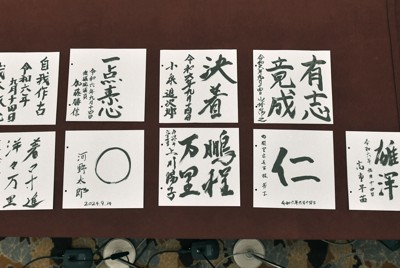 自我作古
令和六年
九月十四日
一点素心
令和六年九月十四日
衆議院議員
加藤勝信
決着
令和六年九月十四日
小泉進次郎
有志
竟成
着々寸進
洋々万里
河野太郎
2024.9.14
鵬程
万里
上川陽子
仁
令和六年九月十四日
雄渾
令和六年九月十四日
高市早苗